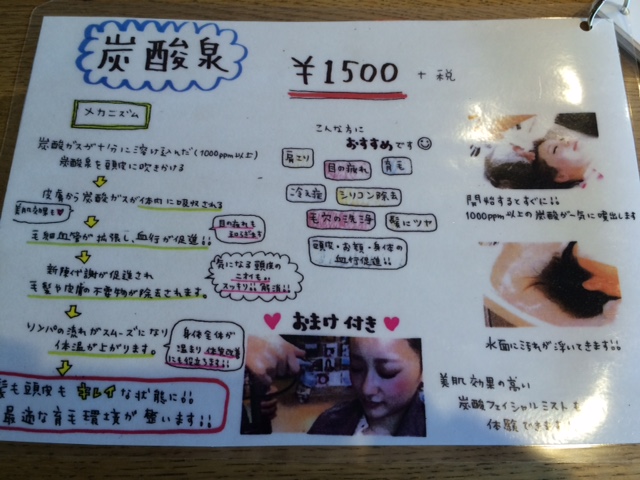 炭酸泉
¥1500 + 税
メカニズム
炭酸ガスが十分に溶け込んだ(1000ppm以上)
炭酸泉を頭皮に吹きかける
皮膚から炭酸ガスが体内に吸収される
美肌効果も
毛細血管が拡張し、血行が促進!!
目の疲れも
和らぎます
新陳代謝が促進され
毛髪や皮膚の不要物が除去されます。
気になる頭皮の
ニオイも
スッキリ!!解消!!
リンパの流れがスムーズになり
体温が上がります。
身体全体が
温まり体質改善
にも役立ちます!!
髪も頭皮もキレイな状態に!!
最適な育毛環境が整います!!
こんな方に
おすすめです
肩こり
目の疲れ
育毛
冷え症
シリコン除去
毛穴の洗浄
髪にツヤ
頭皮・お顔・身体の
血行促進!!
おまけ付き
開始するとすぐに!!
1000ppm以上の炭酸が一気に噴出します
水面に汚れが浮いてきます!!
美肌効果の高い
炭酸フェイシャルミストも
体験できます!!